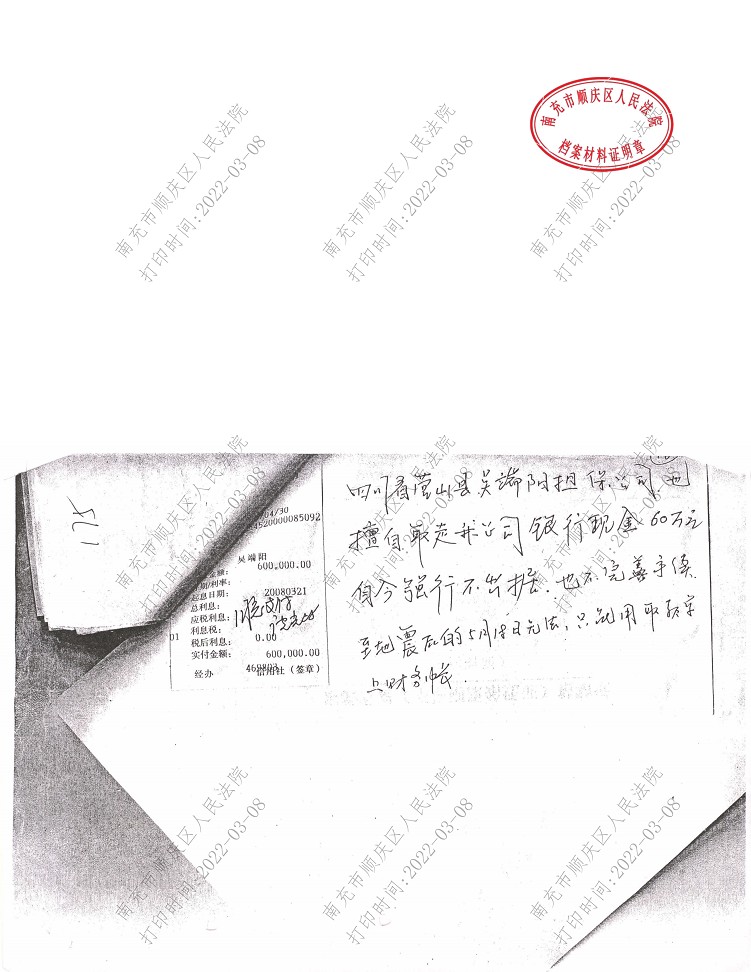 南充市顺庆区人民法院
档案材料证明章
南充市顺庆区人民法院
打印时间:2022-03-08
南充市顺庆区人民法院
打印时间:2022-03-08
南充市顺庆区人民法院
打印时间:2022-03-08
175
04/30
4520000085092
吴端阳
金额: 600,000.00
期/利率:
起息日期: 20080321
总利息:
应税利息:
利息税:
01 税后利息: 0.00
实付金额: 600,000.00
469803
经办 信用社(签章)
四川省营山县吴端阳担保公司,也
擅自取走我公司银行现金60万元
自今强行不出据.也不完善手续.
至地震后的5月18日无法,只就用取款单
上财务帐.
南充市顺庆区人民法院
打印时间:2022-03-08
南充市顺庆区人民法院
打印时间:2022-03-08
南充市顺庆区人民法院
打印时间:2022-03-08
南充市顺庆区人民法院
打印时间:2022-03-08
南充市顺庆区人民法院
打印时间:2022-03-08
南充市顺庆区人民法院
打印时间:2022-03-08